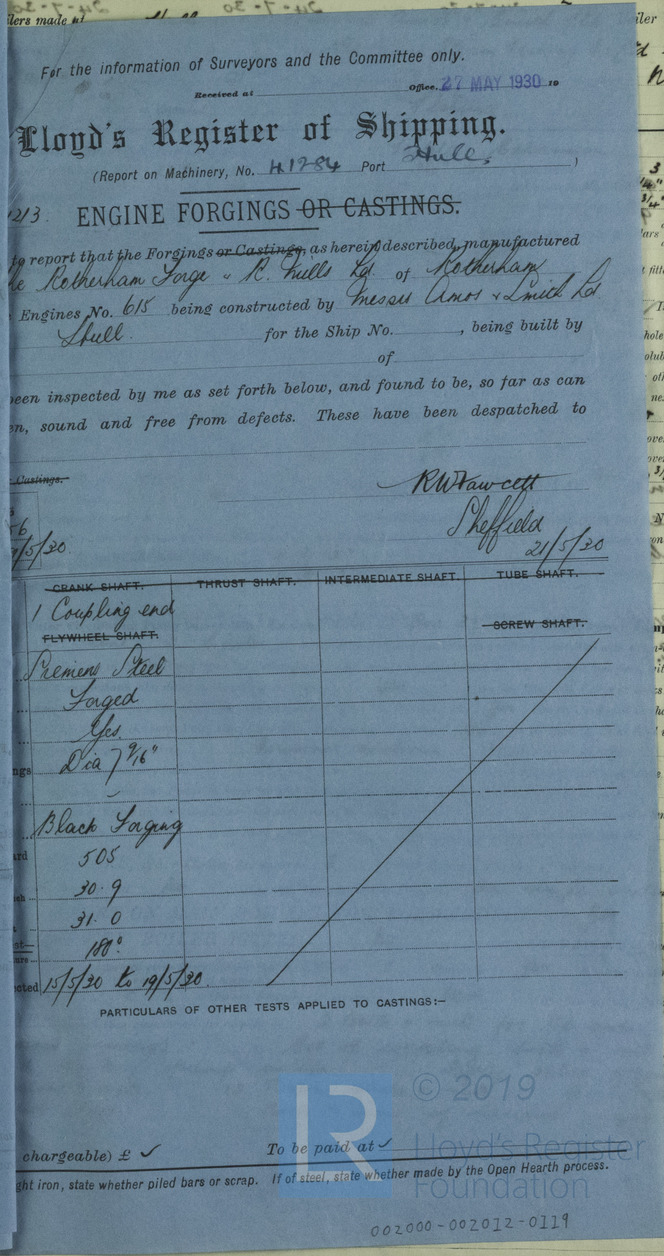 For the information of Surveyors and the Committee only.
Received at Office, 27 MAY 1930 19
Lloyd's Register of Shipping.
(Report on Machinery, No. 41284 Port Hull. )
ENGINE FORGINGS OR CASTINGS.
to report that the Forgings or Castings, as herein described, manufactured
Rotherham Forge & R. Mills Ld. of Rotherham
Engines No. 615 being constructed by Messrs Amos & Smith Ld
Hull. for the Ship No. , being built by
of
been inspected by me as set forth below, and found to be, so far as can
sound and free from defects. These have been despatched to
Castings.
RW Fawcett
Sheffield
21/5/30
/5/30
CRANK SHAFT. THRUST SHAFT. INTERMEDIATE SHAFT. TUBE SHAFT.
1 Coupling end
FLYWHEEL SHAFT. SCREW SHAFT.
Siemens Steel
Forged
Yes
Dia 7 9/16"
Black Forging
505
30.9
31.0
180°
15/5/30 to 19/5/30
PARTICULARS OF OTHER TESTS APPLIED TO CASTINGS:—
© 2019
LR
Lloyd's Register
Foundation
chargeable) £ ✓ To be paid at ✓
iron, state whether piled bars or scrap. If of steel, state whether made by the Open Hearth process.
002000-002012-0119